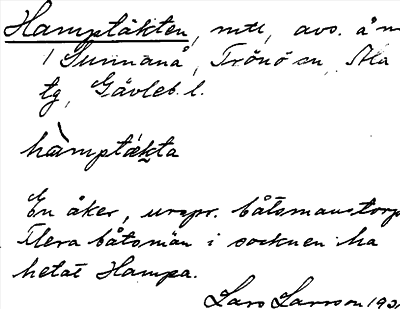 Hamptäkten, mtl, avs. å nr
1 Sunnanå, Trönö sn, Ala
tg, Gävleb. l.
hàmptäkta
En åker, urspr. båtsmanstorp
Flera båtsmän i socknen ha
hetat Hampa.
Lars Larsson 193